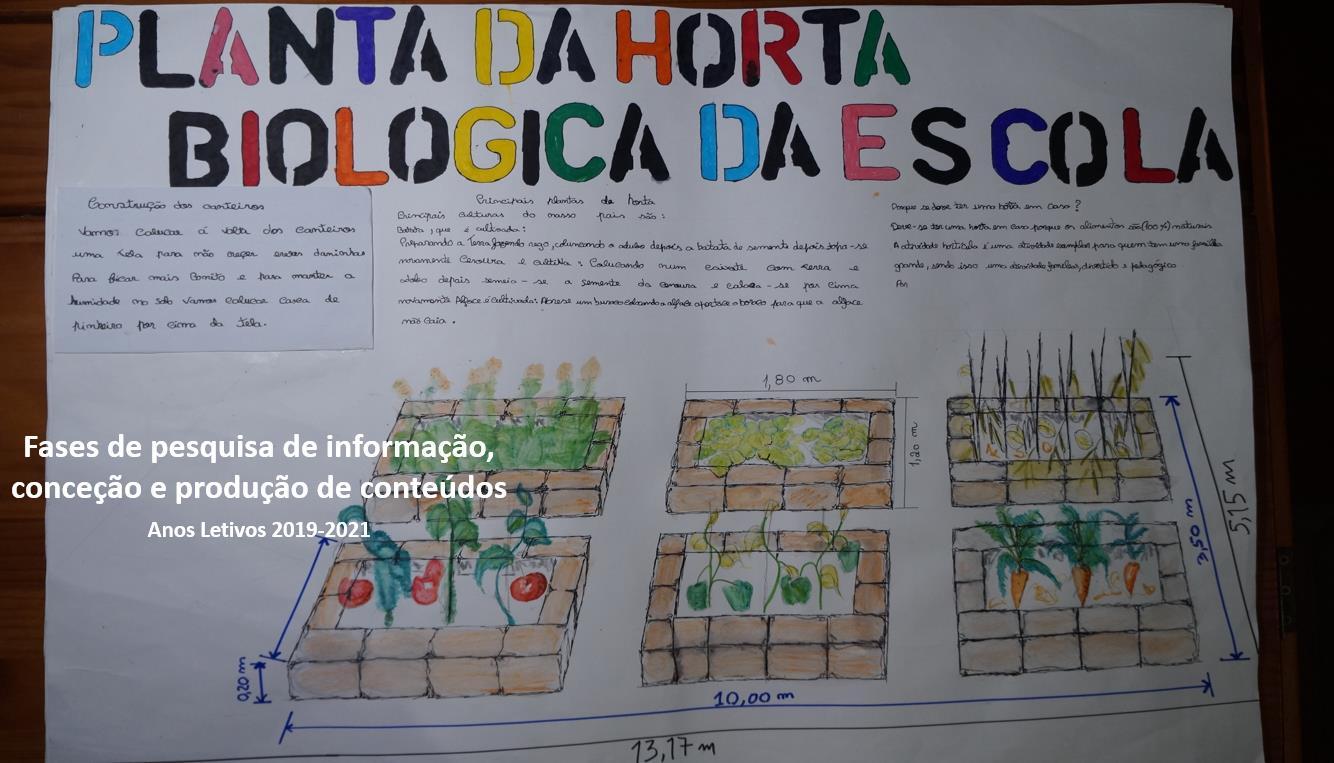 PLANTA DA HORTA
BIOLOGICA DA ESCOLA
Construção dos canteiros
Vamos colucar á volta dos canteiros
uma tela para não crecer ervas daninhas
Para ficar mais bonito e para manter a
humidade no solo vamos colucar casca de
pinheiro por cima da tela.
Principais plantas da horta
Principais culturas do nosso país são:
Batata, que é cultivada:
Preparando a terra fazendo rego, colucando o adubo depois a batata de semente depois tapa-se
novamente Cenoura e cultiva: Colucando num caixote com terra e
adubo depois semeia-se a semente da cenoura e coloca-se por cima
novamente Alface é cultivada: Abre-se um buraco a alface o buraco para que a alface
não Caia.
Porque se deve ter uma horta em casa?
Deve-se ter uma horta em casa porque os alimentos são (100%) naturais
A atividade horticula é uma atividade para quem tem uma família
grande, sendo isso uma atividade familiar, divertida e pedagógica
Por
1,80 m
1,20 m
Fases de pesquisa de informação,
conceção e produção de conteúdos
Anos Letivos 2019-2021
5,15 m
3,50 m
0,20 m
10,00 m
13,17 m